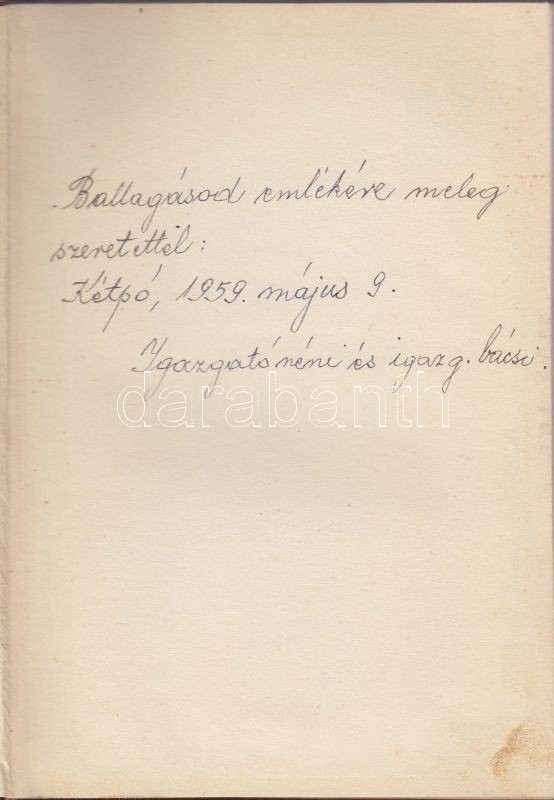 Ballagásod emlékére meleg
szeretettel:
Kétpó, 1959. május 9.
Igazgatónéni és igazg. bácsi.
darabanth